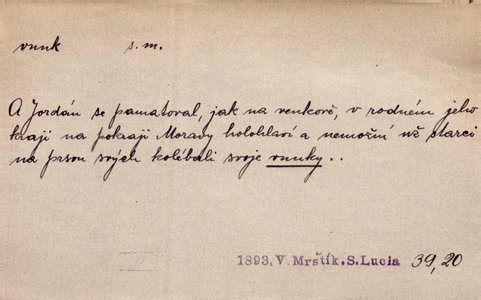 vnuk s. m.
A Jordán se pamatoval, jak na venkově, v rodném jeho
kraji na pokraji Moravy holohlaví a nemožní už starci
na prsou svých kolébali svoje vnuky . .
1893. V. Mrštík. S. Lucia 39, 20